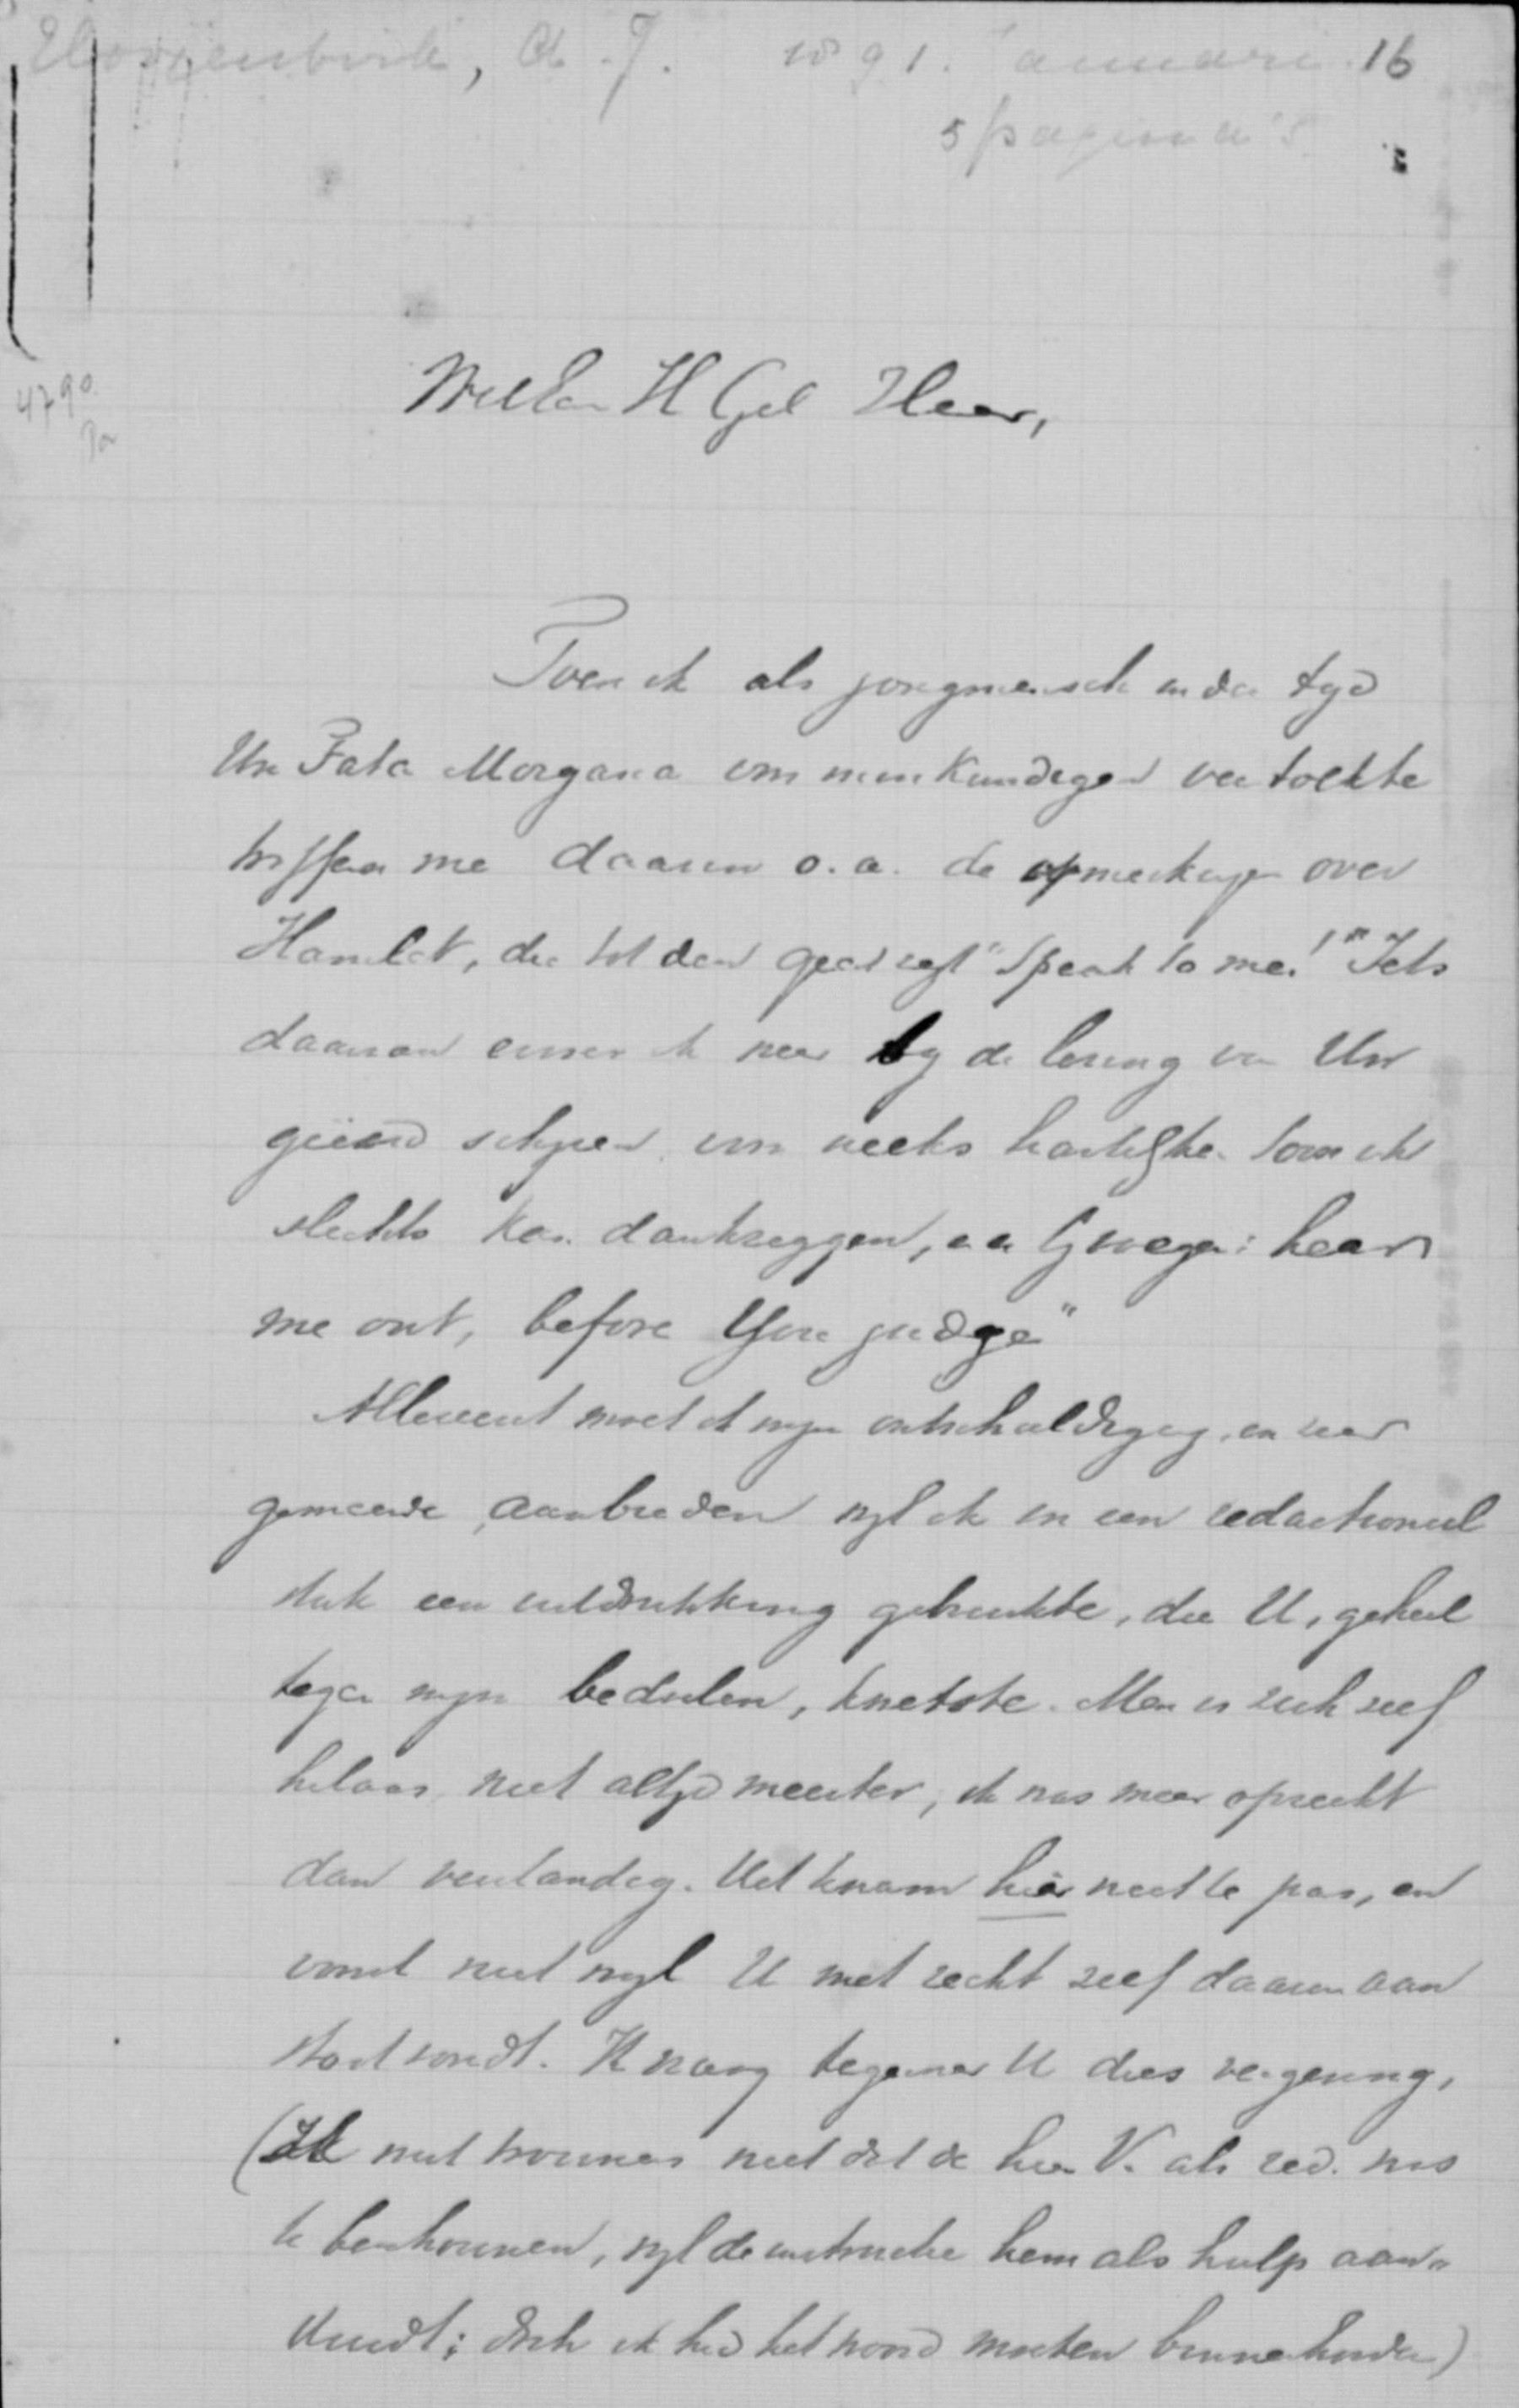 1891. Januari 16
5 pagina's
4790
WelEd H Gel Heer,
Toen ik als jongmensch in der tyd
Uw Fata Morgana om nuw Kundigen vertolkte
troffen me daarin o.a. de opmerkingen over
Hamlet, die tot den geest zegt "Speak to me!" Iets
daarvan ervoer ik weer by de lezing van Uw
geëerd schryven, voor welks hartelyke toon ik
slechts kan dankzeggen, en byvoegen: hear
me out, before You judge"
Allereerst moet ik myn ontschuldiging, en zeer
gemeende, aanbieden wyl ik in een redactioneel
stuk een uitdrukking gebruikte, die U, geheel
tegen myn bedoelen, kwetste. Men is zich zelf
helaas niet altyd meester, ik was meer oprecht
dan verstandig. Het kwam hier niet te pas, en
vooral niet wyl U met recht zelf daarin aan
stoot vondt. Ik vraag tegenover U dus vergeving,
(Ik wist trouwens niet dat de heer V. als red. was
te beschouwen, wyl de instructie hem als hulp aan-
duidt; doch ik had het woord moeten binnenhouden)